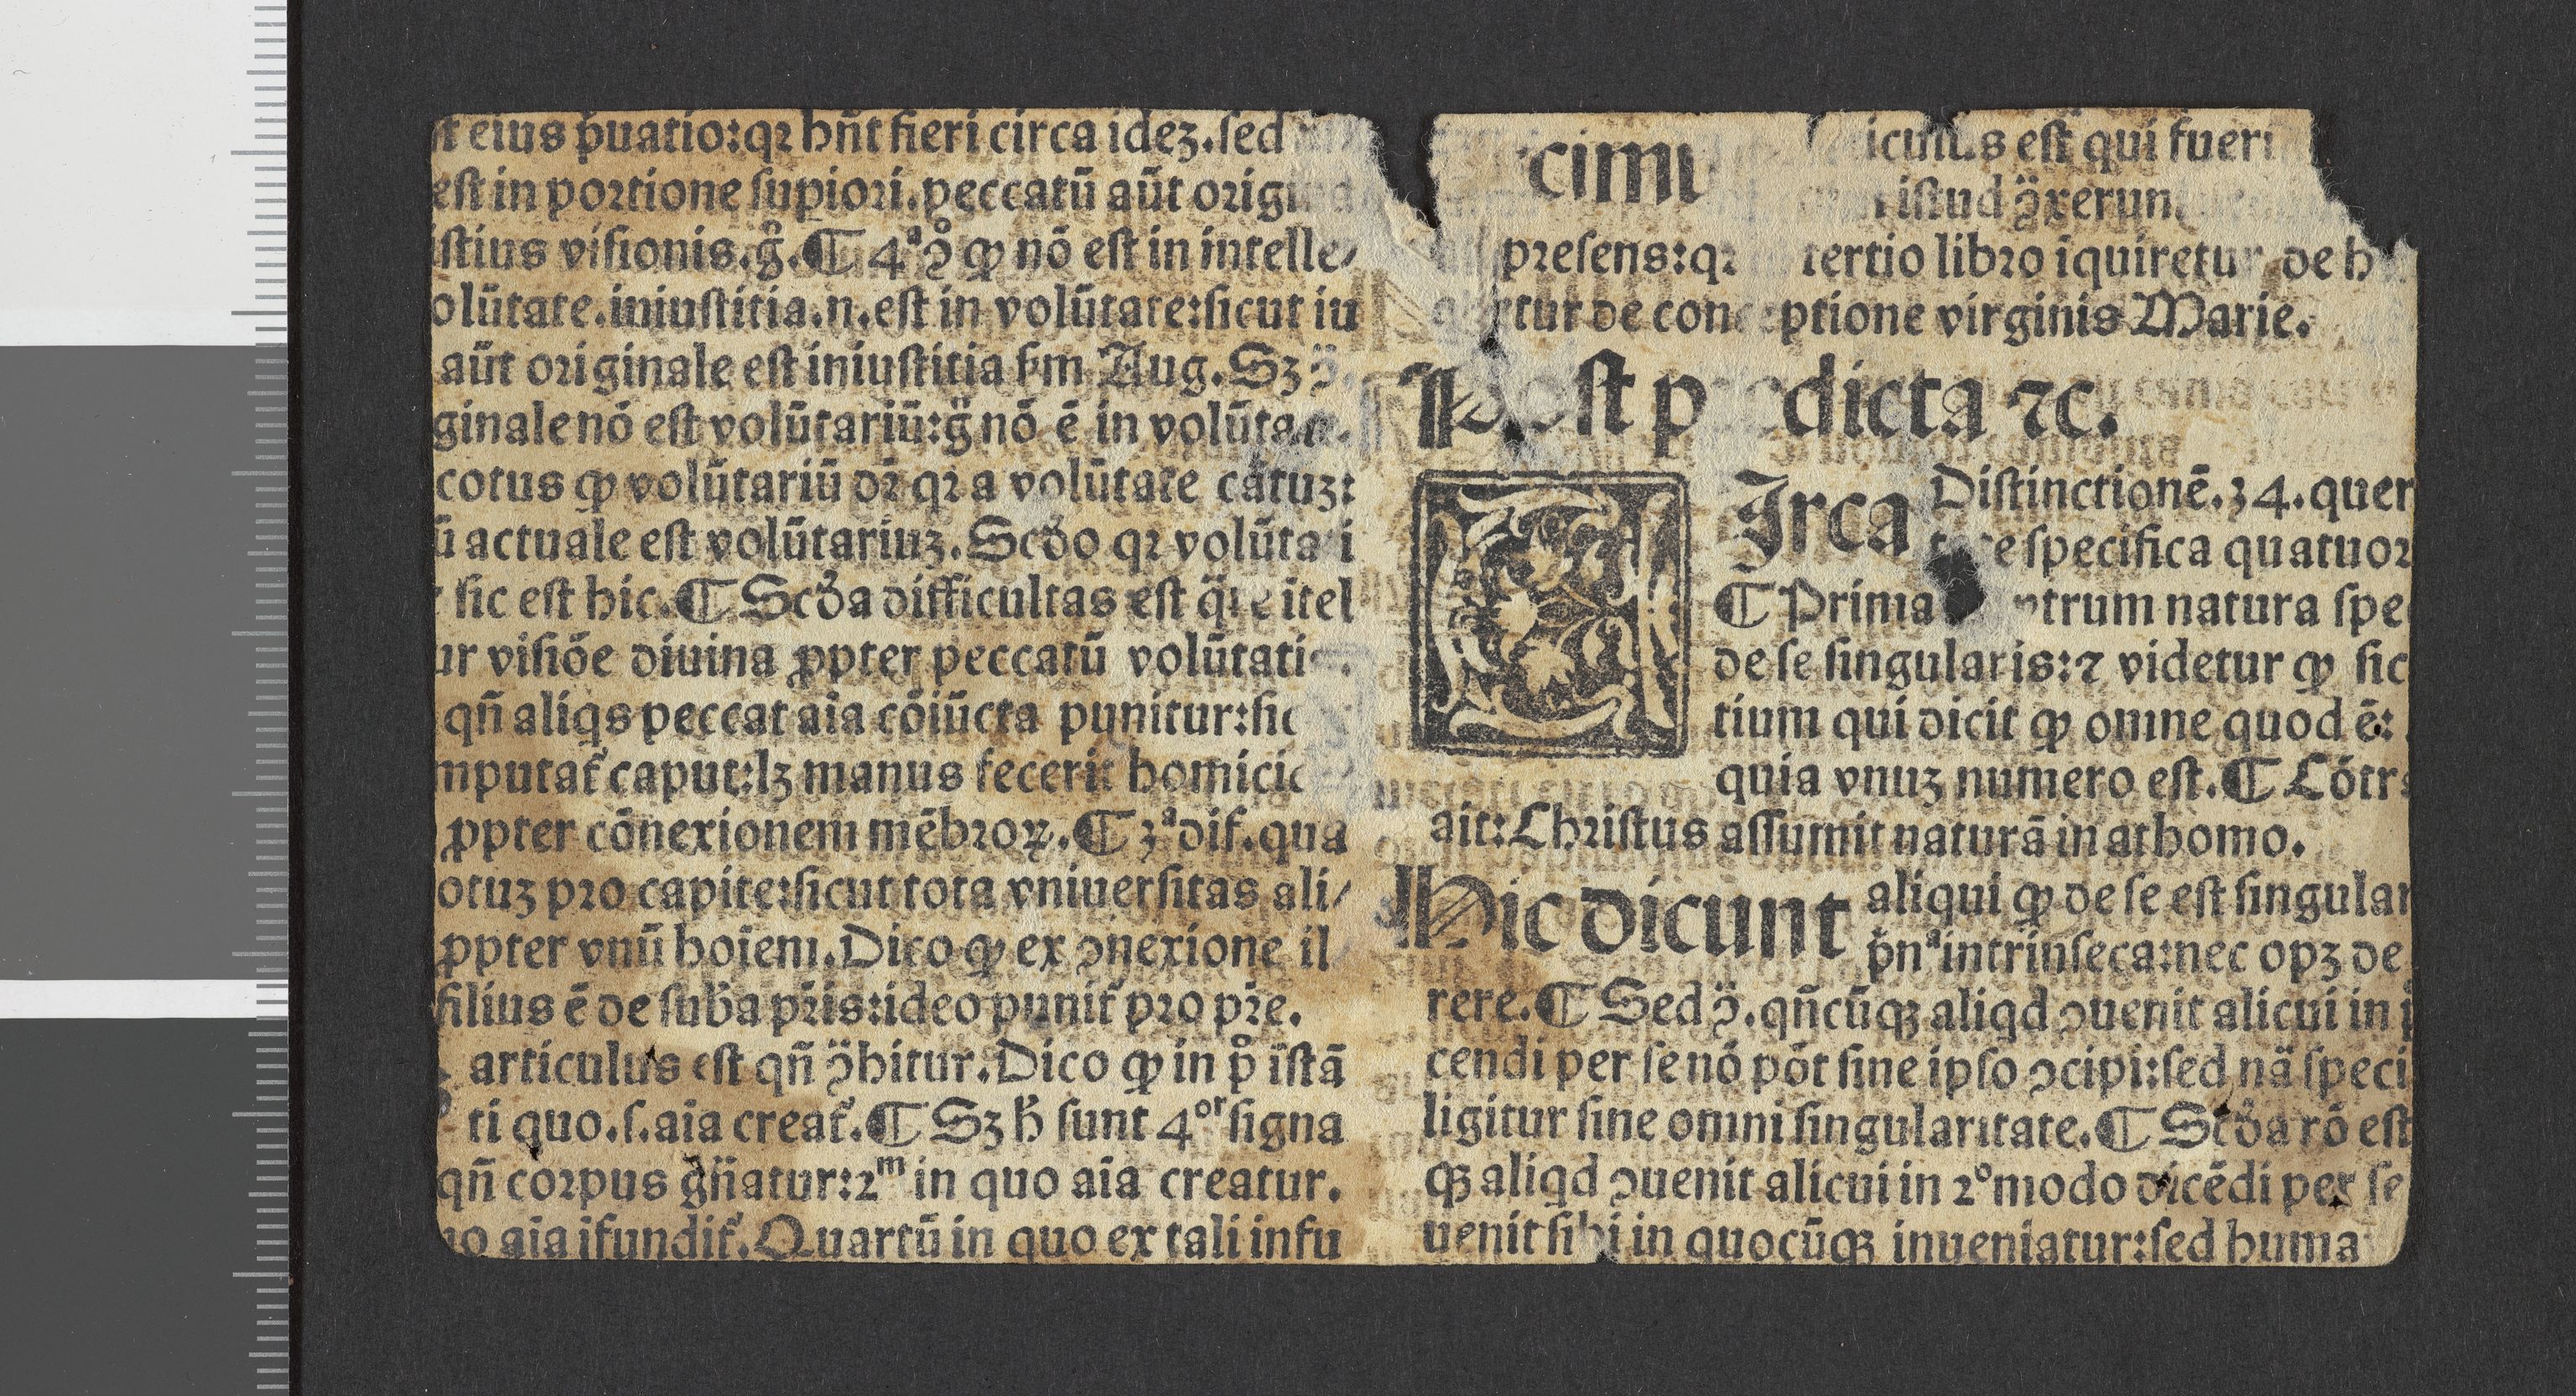 eius p̄uatio:qꝛ hn̄t fieri circa ideꝫ.ſed
eſt in poꝛtione ſupꝛioꝛi.peccatū aūt
iſtius viſionis.g̊.¶ 4ᵃ ꝯ̊ ꝙ nō eſt in intelle/
olūtate.iniuſtitia.n.eſt in volūtate:ſicut iu
aūt oꝛiginale eſt iniuſtitia ẜm Aug. Sꝫ ꝯ̈.
ginale nō eſt volūtariū:g̊ nō ē in volūtate.
cotus ꝙ volūtariū dꝛ̄ qꝛ a volūtate cātuꝫ:
ū actuale eſt volūtariuꝫ. Scd̄o qꝛ volūta i
ſic eſt hic.¶ Scd̄a difficultas eſt itel
ur viſiōe diuina ꝓpter peccatū
qn̄ aliqs peccat aīa cōiūcta punitur:ſic
mputat᷑ caput:lꝫ manus fecerit homici
ꝓpter cōnexionem mēbꝛoꝝ.¶ 3ᵃ dif.qua
otuꝫ pꝛo capite:ſicut tota vniuerſitas ali/
ꝓpter vnū hoīem.Dico ꝙ ex ꝯnexione il
filius ē de ſub̄a pꝛ̄is:ideo punit᷑ pꝛo pꝛ̄e.
articulus eſt qn̄ ꝯ̈hitur.Dico ꝙ in p̊ iſtā
ti quo.ſ.aīa creat᷑.¶ Sꝫ h̄ ſunt 4ᵒʳ ſigna
qn̄ coꝛpus gn̄atur:2ᵐ in quo aīa creatur.
uo aīa ifundit᷑.Quartū in quo ex tali infu
cimu iculus eſt qui fueri
iſtud ꝯ̈xerun
pꝛeſens:qꝛ tertio libꝛo iquiretur de h
tur de conceptione virginis Marie.
Poſt pꝛedicta ⁊c.
Irca Diſtinctionē.34.quer
ſpecifica quatuoꝛ
¶ Prima vtrum natura ſpe
de ſe ſingularis:⁊ videtur ꝙ ſic
tium qui dicit ꝙ omne quod ē:
quia vnuꝫ numero eſt.¶ Cōtra
ait:Chꝛiſtus aſſumit naturā in athomo.
Hic dicunt aliqui ꝙ de ſe eſt ſingular
p̄nᵃ intrinſeca:nec opꝫ de
rere.¶ Sed ꝯ̈.qn̄cūqꝫ aliqd ꝯuenit alicui in
cendi per ſe nō pōt ſine ipſo ꝯcipi:ſed nā ſpeci
ligitur ſine omni ſingularitate.¶ Scd̄a rō eſt
qꝫ aliqd ꝯuenit alicui in 2° modo dicēdi per ſe
uenit ſibi in quocūqꝫ inueniatur:ſed huma